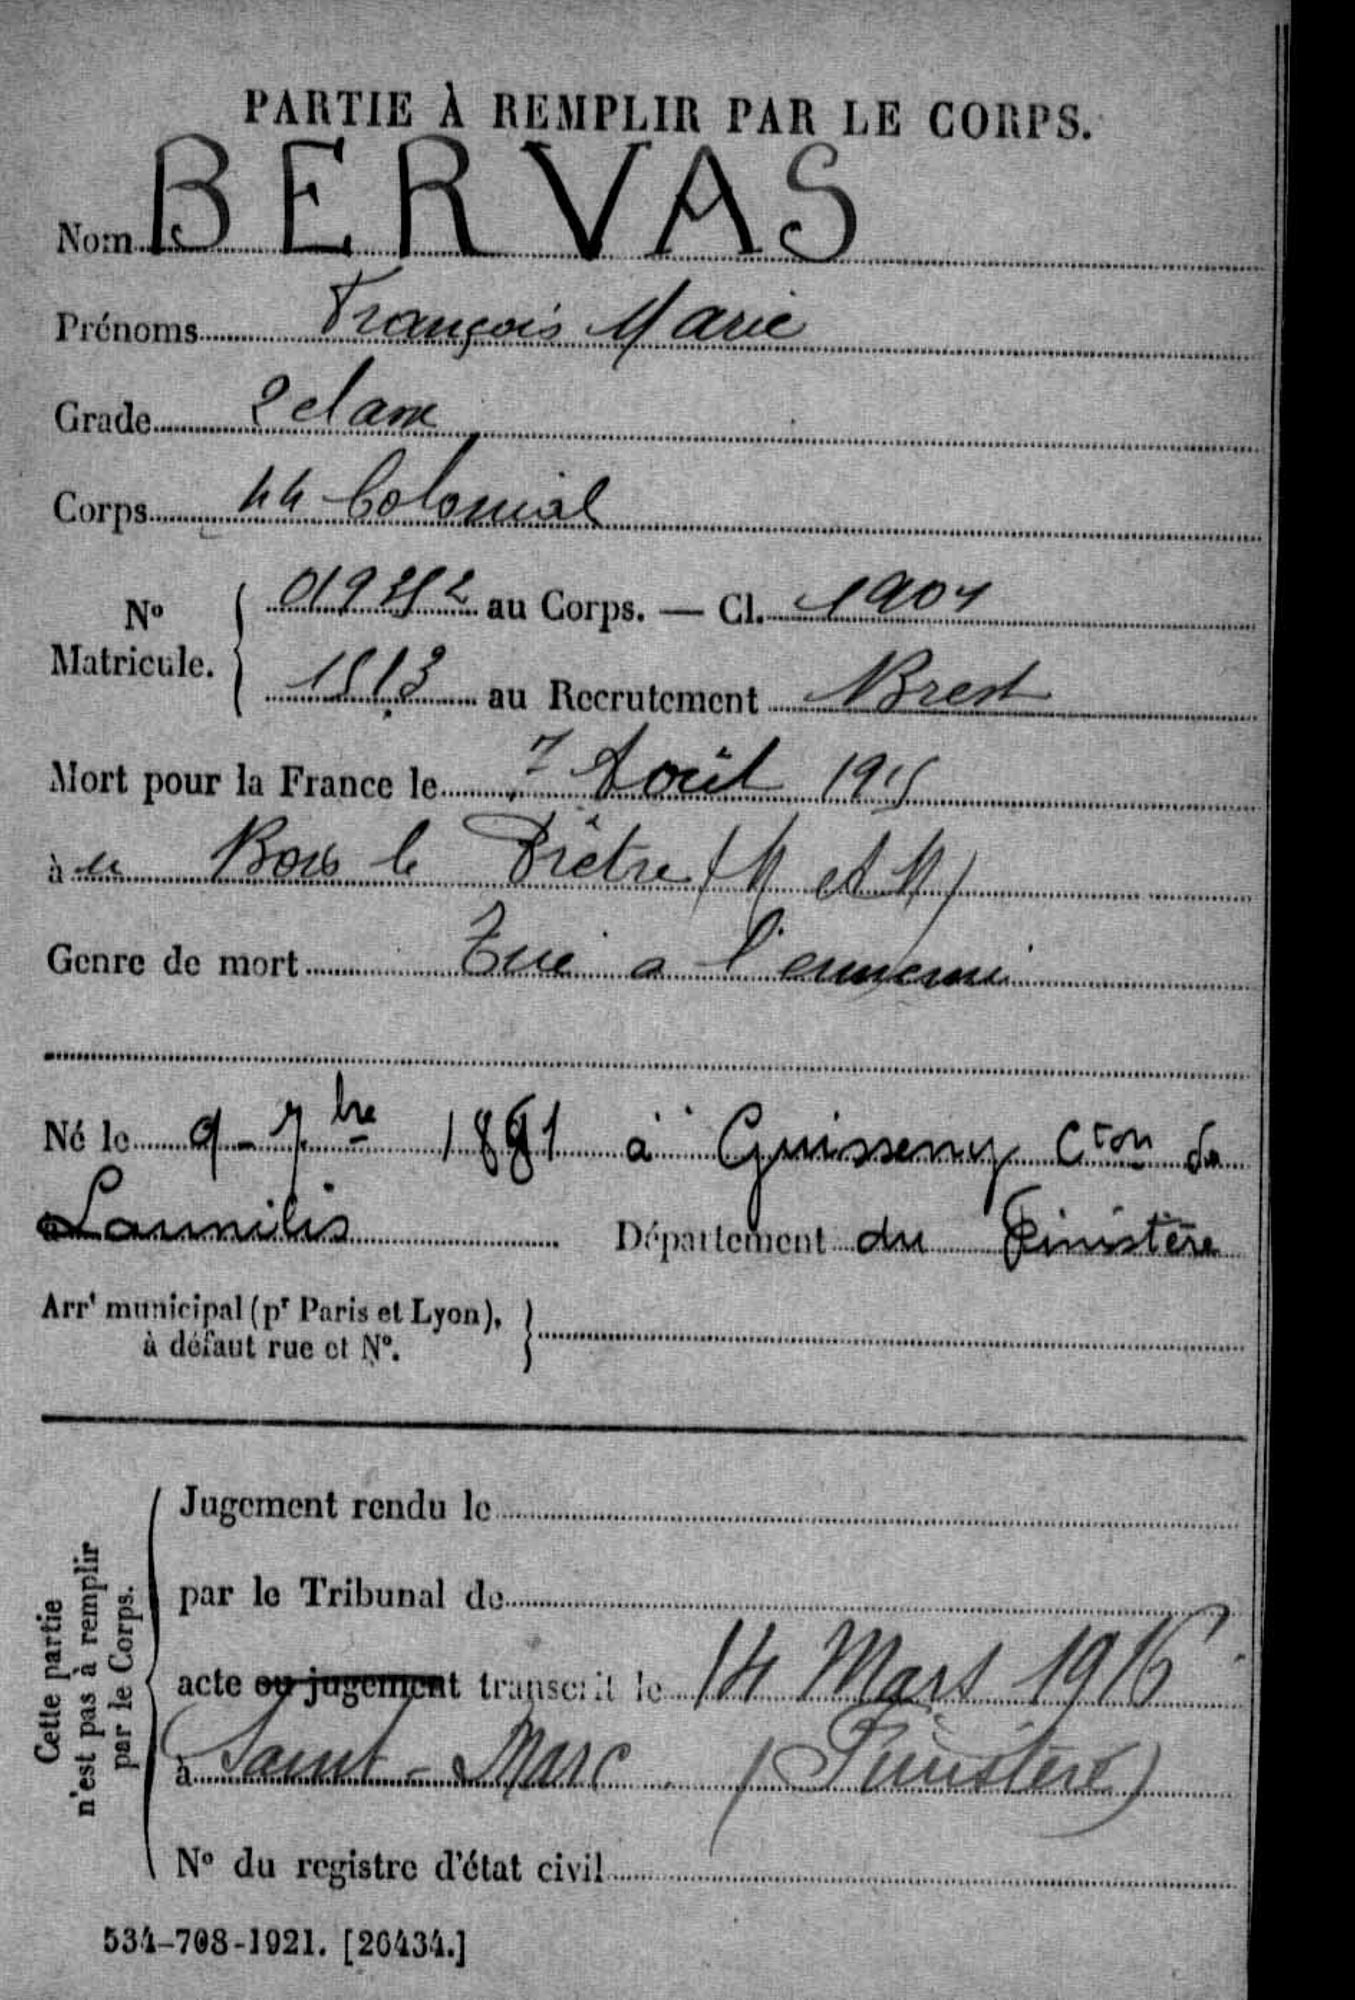 PARTIE À REMPLIR PAR LE CORPS.
Nom BERVAS
Prénoms François Marie
Grade 2 classe
Corps 44 Colonial
No au Corps. — Cl. 1901
Matricule. 1513 au Recrutement Brest
Mort pour la France le 7 Août 1915
à u Bois le Prêtre (M et M)
Genre de mort Tué a l'ennemi
Né le 9-7bre 1881 à Guisseny Cton de
Lannilis Département du Finistère
Arrt municipal (pr Paris et Lyon),
à défaut rue et No.
Cette partie
n'est pas à remplir
par le Corps.
Jugement rendu le
par le Tribunal de
acte ou jugement transcrit le 14 Mars 1916
à Saint-Marc (Finistère)
No du registre d'état civil
534-708-1921. [26434.]